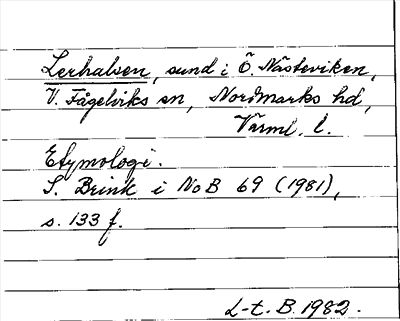 Lerhalsen, sund i Ö. Näsveviken,
V. Fågelviks sn, Nordmarks hd,
Värml. l.
Etymologi.
S. Brink i NoB 69 (1981),
s. 133 f.
L-t. B. 1982.